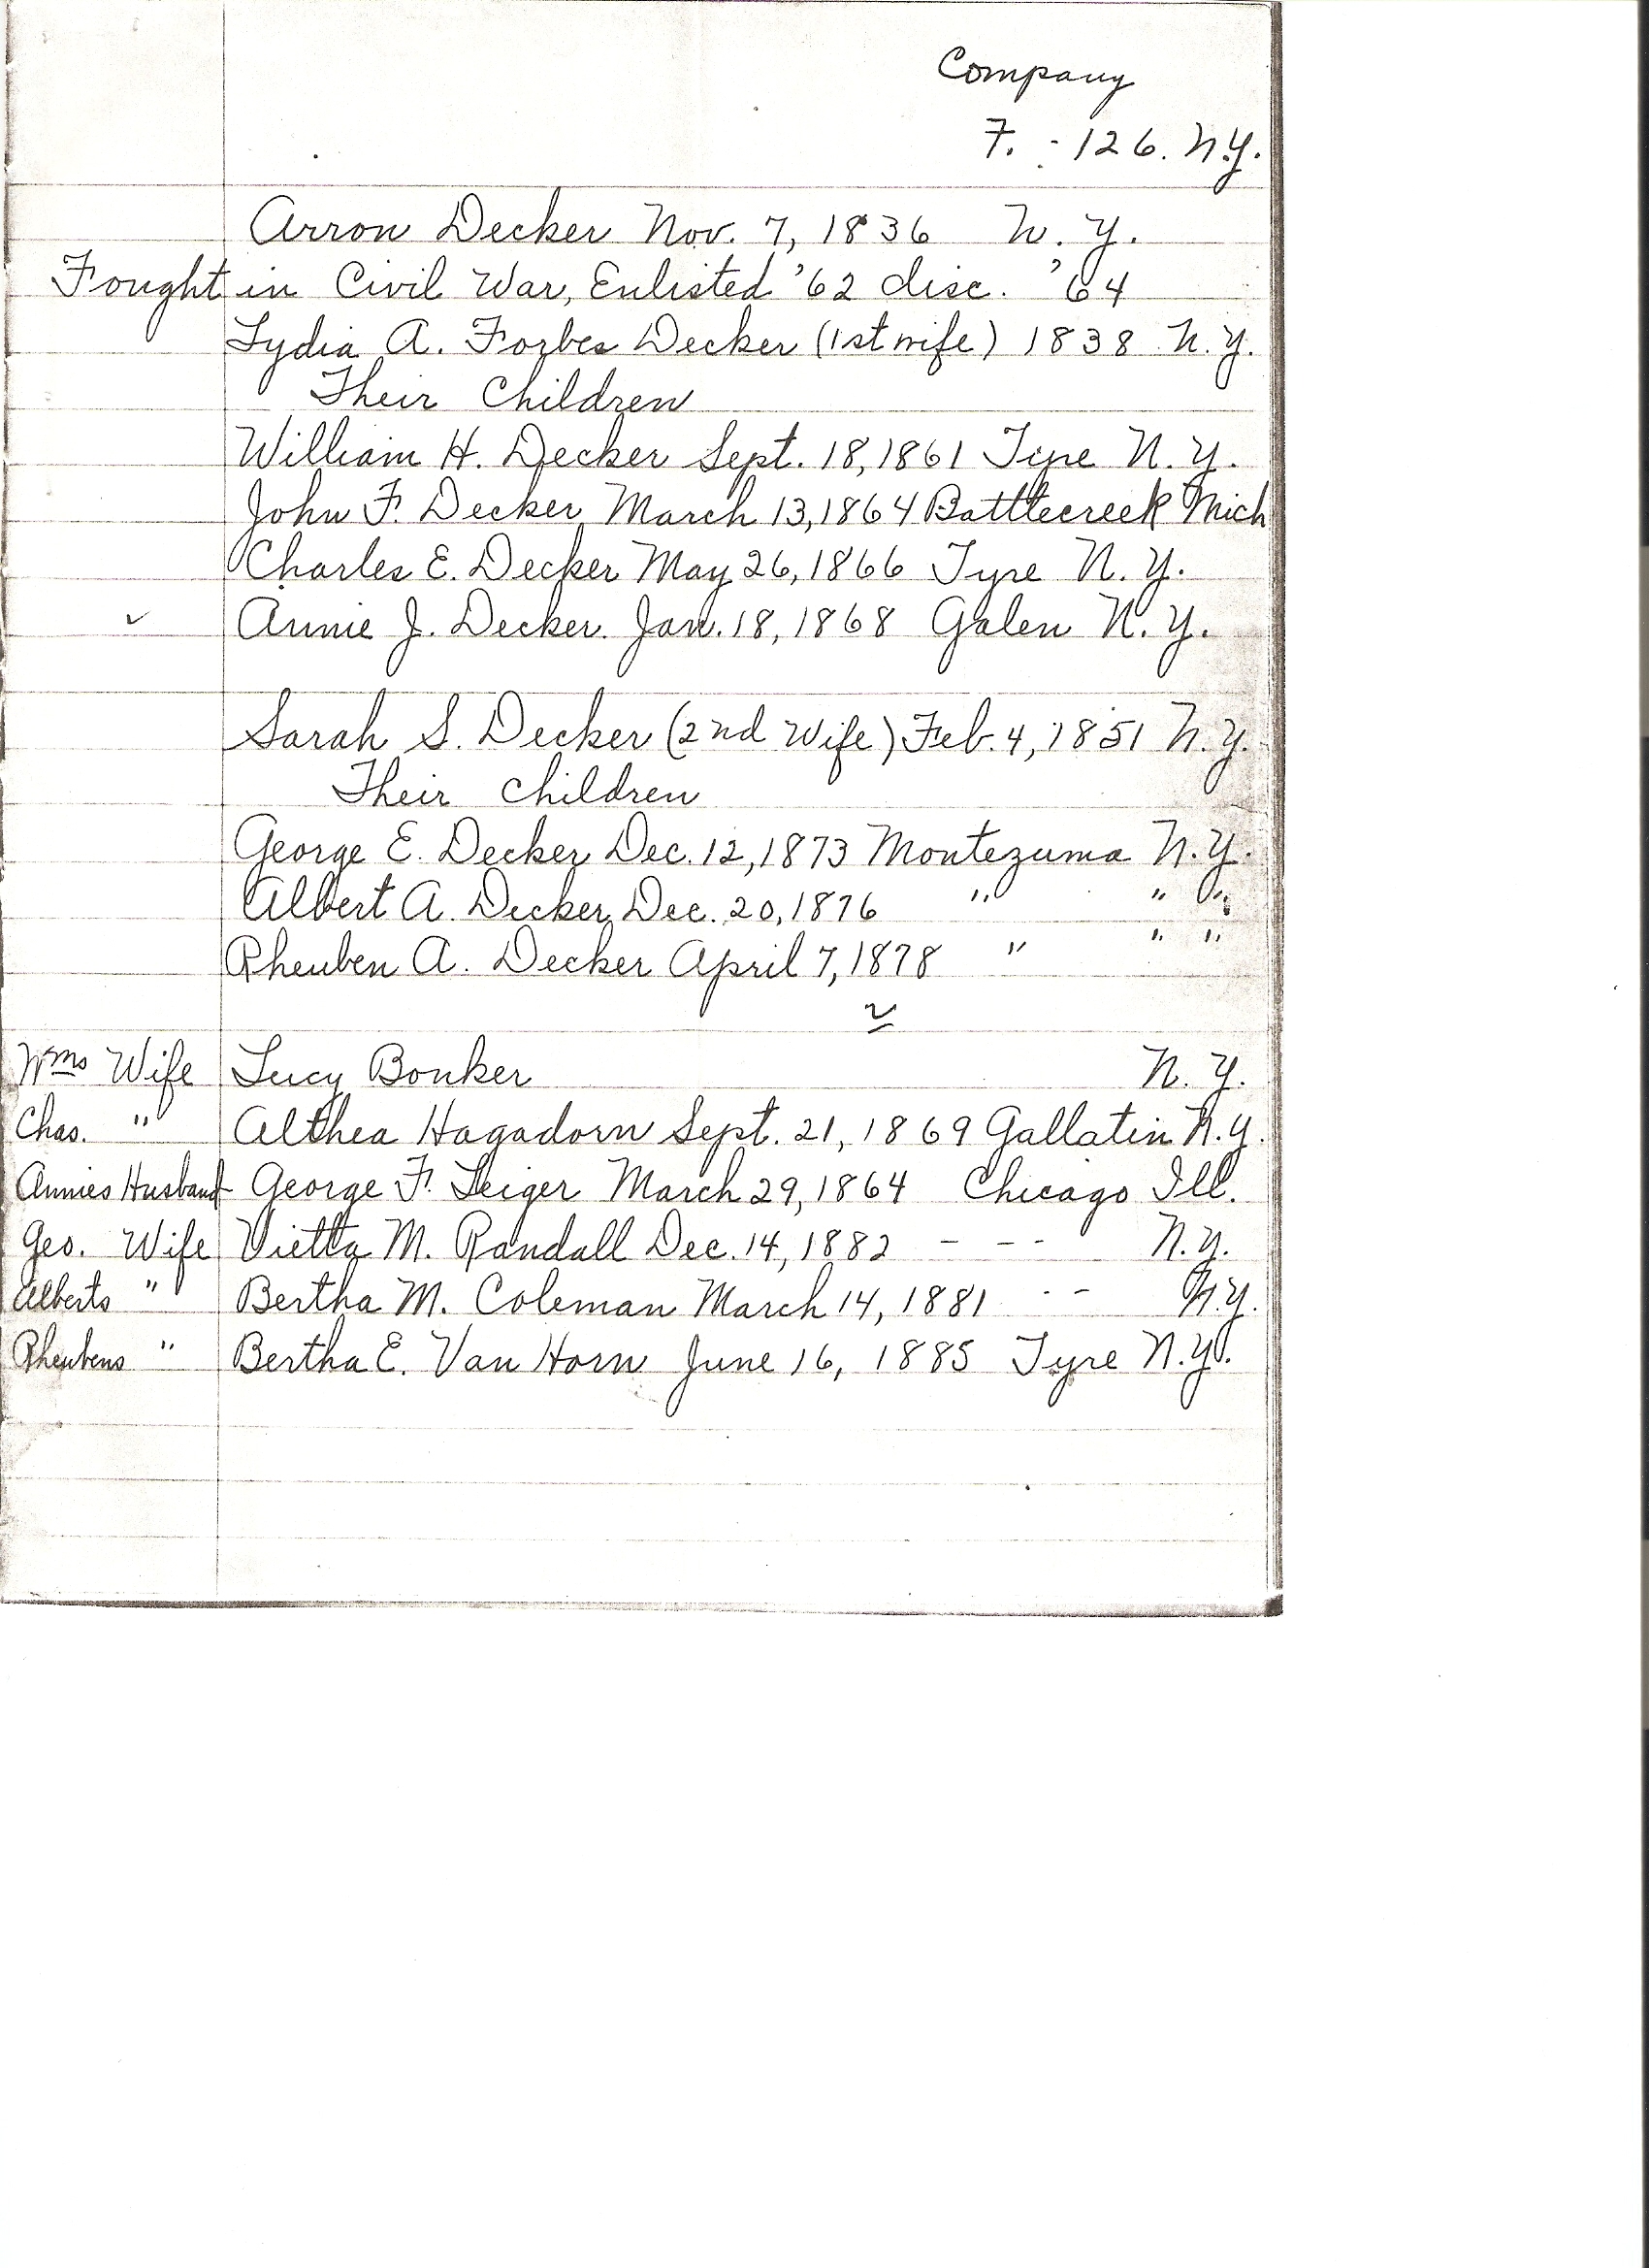 Company
F. - 126. N.Y.
Arron Decker Nov. 7, 1836 N. Y.
Fought in Civil War, Enlisted '62 disc. '64
Lydia A. Forbes Decker (1st wife) 1838 N. Y.
Their Children
William H. Decker Sept. 18, 1861 Tyre N. Y.
John F. Decker March 13, 1864 Battlecreek Mich
Charles E. Decker May 26, 1866 Tyre N. Y.
✓ Annie J. Decker. Jan. 18, 1868 Galen N. Y.
Sarah S. Decker (2nd Wife) Feb. 4, 1851 N. Y.
Their Children
George E. Decker Dec. 12, 1873 Montezuma N. Y.
Albert A. Decker Dec. 20, 1876 " " "
Rheuben A. Decker April 7, 1878 " " "
Wms Wife Lucy Bonker N. Y.
Chas. " Althea Hagadorn Sept. 21, 1869 Gallatin N. Y.
Annies Husband George F. Leiger March 29, 1864 Chicago Ill.
Geo. Wife Vietta M. Randall Dec. 14, 1882 - - - N. Y.
Alberts " Bertha M. Coleman March 14, 1881 - - N. Y.
Rheubens " Bertha E. Van Horn June 16, 1885 Tyre N. Y.